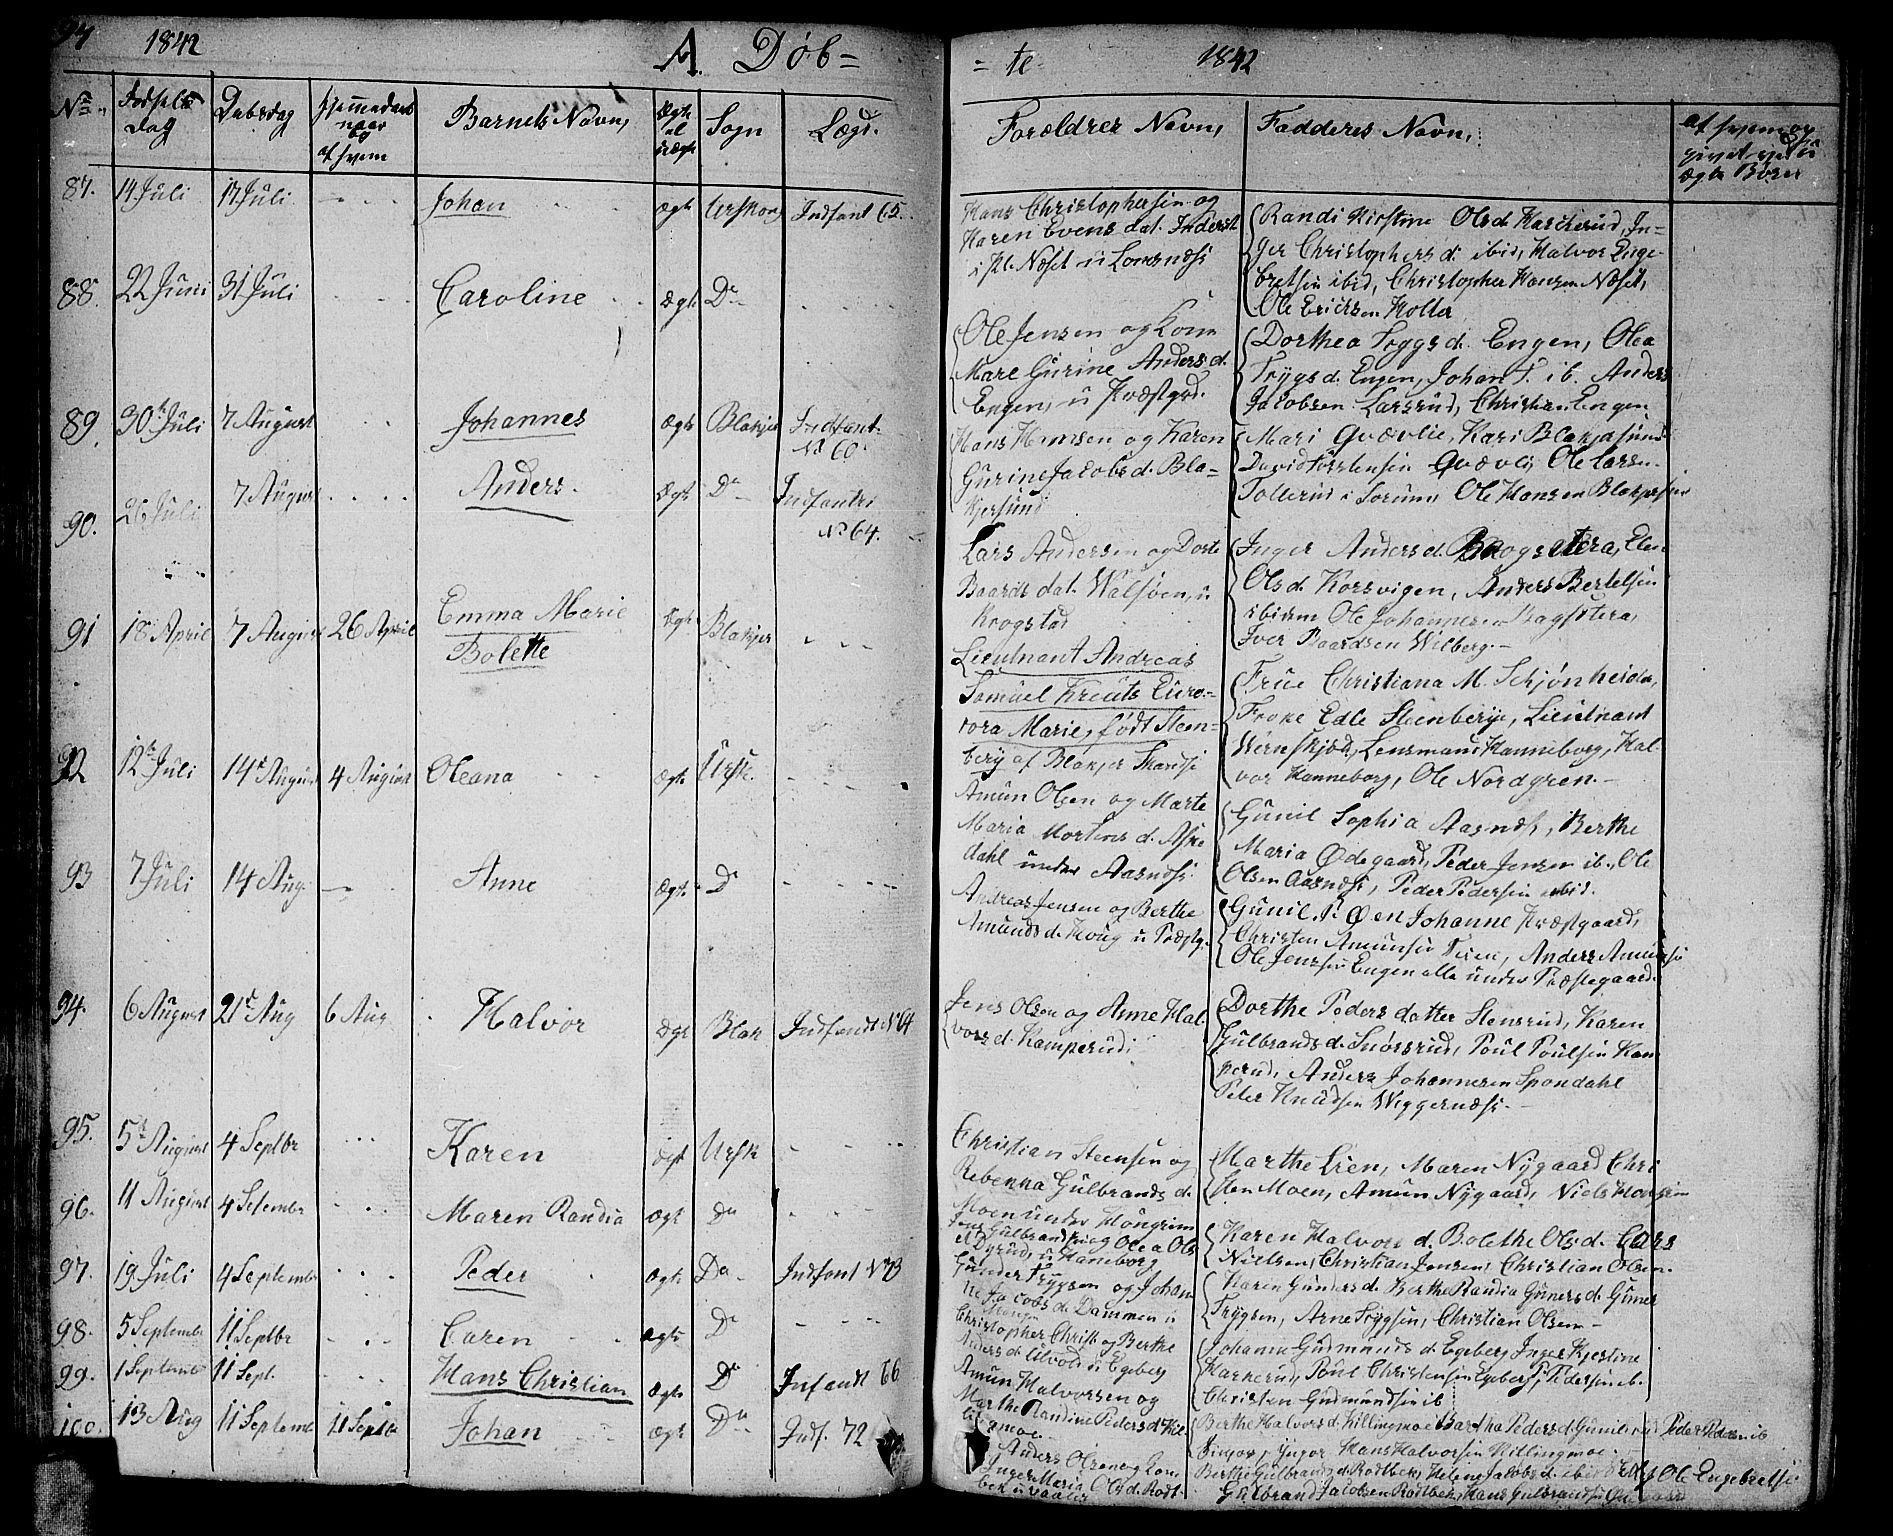 94 1842 A. Døb=
= te 1842
No. Fødsels Dag Daabsdag hjemmedøbt naar og af hvem Barnets Navn, Ægte el uægte Sogn Lægd.
Forældres Navn, Faddernes Navn, af hvem og
87. 14 Juli 17 Juli Johan Ægte Urskog Indfant 65.
Hans Christophersen og
Karen Evens dat. Inderst
Næset u Lonsnæsi
Randi Kirstine Olsd. Karterud, In=
ger Christophersd. ibid, Halvor Enge=
bretsen ibid, Christopher Hansen Næset,
Ole Ericksen Holla
88. 22 Juni 31 Juli Caroline Ægte Do
Ole Jensen og Kone
Mare Gurine Anders d.
Engen, u Præstgrd.
Dorthea Trygs d. Engen, Olea
Trygs d. Engen, Johan T. ib. Anders
Jacobsen Larsrud, Christian Engen
89. 30te Juli 7 August Johannes Ægte Blakjer Indfant. No 60.
Hans Hansen og Karen
Gurine Jacobs d. Bla=
kjersund
Mari Qvævlie, Kari Blakjasund
David Torstensen Qvævli, Ole Larsn.
Tollerud i Sorum Ole Hansen Blakjersun
90. 26 Juli 7 August Anders Ægte Do Indfantri No 64.
Lars Andersen og Dorte
Baards dat. Walsøen, u
Krogstad
Inger Anders d. Krogsætera, Elen
Olsd. Korsvigen, Anders Bertelsen
ibidem Ole Johannesen Kragsætera,
Iver Baardsen Wilberg.-
91 18 April 7 August 26 April Emma Marie Bolette Ægte Blakjer
Lieutnant Andreas
Samuel Kreutz Euro=
rora Marie, født Steen=
berg af Blakjer Skandse
Frue Christiana M. Schjønheida,
Frøke Edle Steenberg, Lieutnant
Wernskjold, Lensmand Hanneborg, Hal=
vor Hanneborg, Ole Nordgren.-
92 12te Juli 14de August 4 August Oleana Ægte Urske.
Amun Olsen og Marte
Maria Mortens d. Aske
dahl under Aasnæsi
Gunil Sophia Aasnæs, Berthe
Maria Ødegaard, Peder Jensen ib., Ole
Olsen Aasnæsi, Peder Pedersen ibid.
93 7 Juli 14 Aug. Anne Ægte Do
Andreas Jensen og Berthe
Amunds d. Houg u Præstg.
Gunil Øen Johanne Præstgaard,
Christen Amunsen Anders Amunsen
Ole Jensen Engen alle under Præstegaard.
94. 6 August 21de Aug 6 Aug Halvor Ægte Blak Indfandt No 64
Jens Olsen og Anne Hal=
vors d. Kamperud;
Dorthe Peders datter Stensrud, Karen
Gulbrands d. Snorsrud, Poul Poulsen Kam
perud, Anders Johannesen Spondahl
Peter Knudsen Wiggernæsi.-
95. 5te August 4 Septbr Karen ægt Ursk
Christian Steensen og
Rebekka Gulbrands d.
Moen under Hougrim
Marthe Lien, Maren Nygaard Chri
sten Moen, Amun Nygaard, Niels Hougrim
96. 11 August 4 Setembr Maren Randia Ægt Do
Jens Gulbrandsen og Olea Ols
d. Dyrud, u Haneborg
Karen Halvors d. Bolethe Olsd. Lars
Nielsen, Christian Jensen, Christian Olsen.
97. 19 Juli 4 Septembr Peder Ægte Do Indfant No 73
Gunder Trygsen og Johan
ne Jacobs d. Dammen u
Karen Gunders d. Berthe Randia Guners d. Guner
Trygsen, Arne Trygsen, Christian Olsen.-
98. 5 Septembr 11 Septbr Caren Ægte Do
Christopher Christ. og Berthe
Anders d. Ulvold u Egeberg
Johanne Gudmunds d. Egeberg Inger Kjestine
Harkerud, Poul Christensen Egeberg, Pedersen ib.
Christen Gudmundsen ib
99. 1 Septembr 11 Sept. Hans Christian Ægte Do Infandt 66
Amun Halvorsen og
Marthe Randine Peders d. Kil
lingmoe
Berthe Halvors d. Killingmoe Bertha Peders d. Peder Peders ib
Hans Halvorsen Killingmoe.
100. 13 Aug 11 Septemb 11 Septbr Johan Ægte Do Indf. 72
Anders Olsen og Kone
Inger Maria Ols d. Rodt
bek u Vaaler
Berthe Gulbrands d. Rodtbek, Helene Jacobs d. ibid Ole Engebretsen
Gulbrand Jacobsen Rodtbek, Hans Gulbrandsen